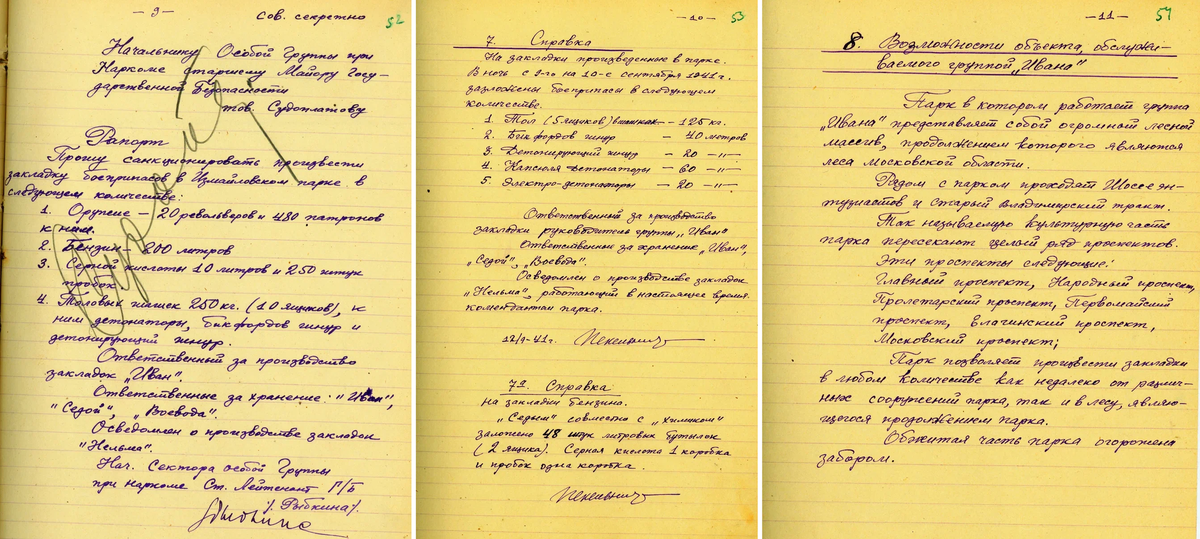 — 9 —
сов. секретно
52
Начальнику Особой Группы при
Наркоме старшему Майору Госу-
дарственной Безопасности
тов. Судоплатову
Рапорт
Прошу санкционировать произвести
закладку боеприпасов в Измайловском парке в
следующем количестве:
1. Оружие — 20 револьверов и 480 патронов
к ним.
2. Бензин — 200 литров
3. Серной кислоты 10 литров и 250 штук
пробок
4. Толовых шашек 250 кг. (10 ящиков), к
ним детонаторы, бикфордов шнур и
детонирующий шнур.
Ответственный за производство
закладок „Иван".
Ответственные за хранение: "Иван",
"Седой", „Воевода".
Осведомлен о производстве закладок
"Нельма".
Нач. Сектора особой Группы
при наркоме Ст. Лейтенант Г/Б
/. Рыбкина /.
— 10 —
53
7. Справка
На закладки произведенные в парке.
В ночь с 9-го на 10-е сентября 1941 г.
заложены боеприпасы в следующем
количестве.
1. Тол (5 ящиков) — 125 кг.
2. Бикфордов шнур — 40 метров
3. Детонирующий шнур — 20 —„—
4. Капсюля детонаторы — 60 —„—
5. Электро-детонаторы — 20 —„—
Ответственный за производство
закладки руководитель группы „Иван"
Ответственные за хранение „Иван",
„Седой", „Воевода".
Осведомлен о производстве закладок
„Нельма", работающий в настоящее время
комендантом парка.
12/9-41г.
7а Справка
на закладки бензино.
"Седым" совместо с „химиком"
заложено 48 штук литровых бутылок
(2 ящика). Серная кислота 1 коробка
и пробок одна коробка.
— 11 —
54
8. Возможности объекта, обслужи-
ваемого группой „Ивана"
Парк в котором работает группа
„Ивана" представляет собой огромный лесной
массив, продолжением которого являются
леса Московской области.
Рядом с парком проходят Шоссе эн-
тузиастов и старый Владимирский тракт.
Так называемую культурную часть
парка пересекают целый ряд проспектов.
Эти проспекты следующие:
Главный проспект, Народный проспект,
Пролетарский проспект, Первомайский
проспект, Елагинский проспект,
Московский проспект;
Парк позволяет произвести закладки
в любом количестве как недалеко от различ-
ных сооружений парка, так и в лесу, являю-
щегося продолжением парка.
Обжитая часть парка огорожена
забором.